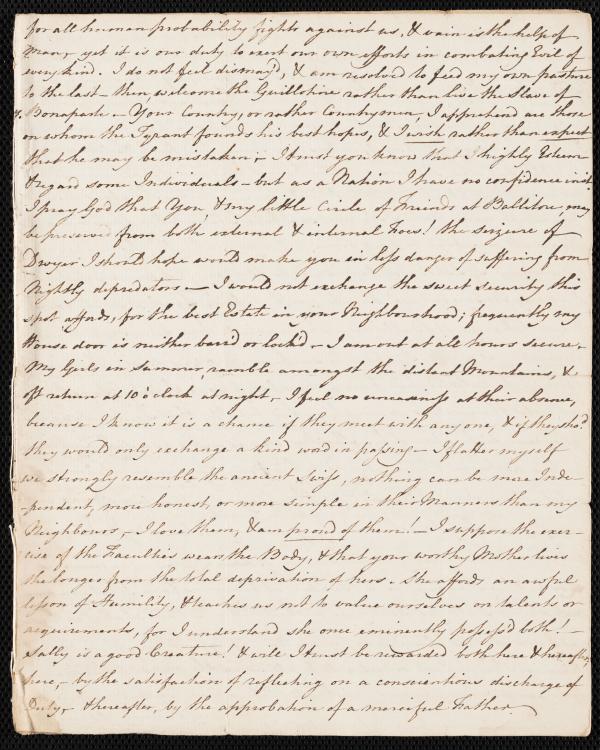 for all human probability fights against us, & vain is the help of
Man, yet it is our duty to exert our own efforts in combating Evil of
every kind. I do not feel dismay'd, & am resolved to feed my own pasture
to the last - then welcome the Guillotine rather than live the Slave of
Bonaparte. - Your Country, or rather Countrymen, I apprehend are those
on whom the Tyrant founds his best hopes, & I wish rather than expect
that he may be mistaken; - I trust you know that I highly Esteem
& regard some Individuals - but as a Nation I have no confidence in it.
I pray God that You, & my little Circle of Friends at Ballitore may
be preserved from both external & internal Foes! the seizure of
Dwyer I should hope would make you in less danger of suffering from
Nightly depredators - I would not exchange the sweet security this
spot affords, for the best Estate in your Neighbourhood; frequently my
House door is neither barr'd or lock'd - I am out at all hours secure,
My Girls in summer, ramble amongst the distant Mountains, &
oft return at 10 o'clock at night, I feel no uneasiness at their absence,
because I know it is a chance if they meet with any one, & if they sho'd
they would only exchange a kind word in passing - I flatter myself
we strongly resemble the ancient Swiss, nothing can be more Inde-
-pendent, more honest, or more simple in their Manners than my
Neighbours, - I love them, & am proud of them! - I suppose the exer-
cise of the Faculties wears the Body, & that your worthy Mother lives
the longer from the total deprivation of hers. She affords an awful
lesson of Humility, & teaches us not to value ourselves on talents or
acquirements, for I understand she once eminently possess'd both! -
Sally is a good Creature! & will I trust be rewarded both here & hereafter,
here, - by the satisfaction of reflecting on a conscientious discharge of
Duty, - & hereafter, by the approbation of a merciful Father.